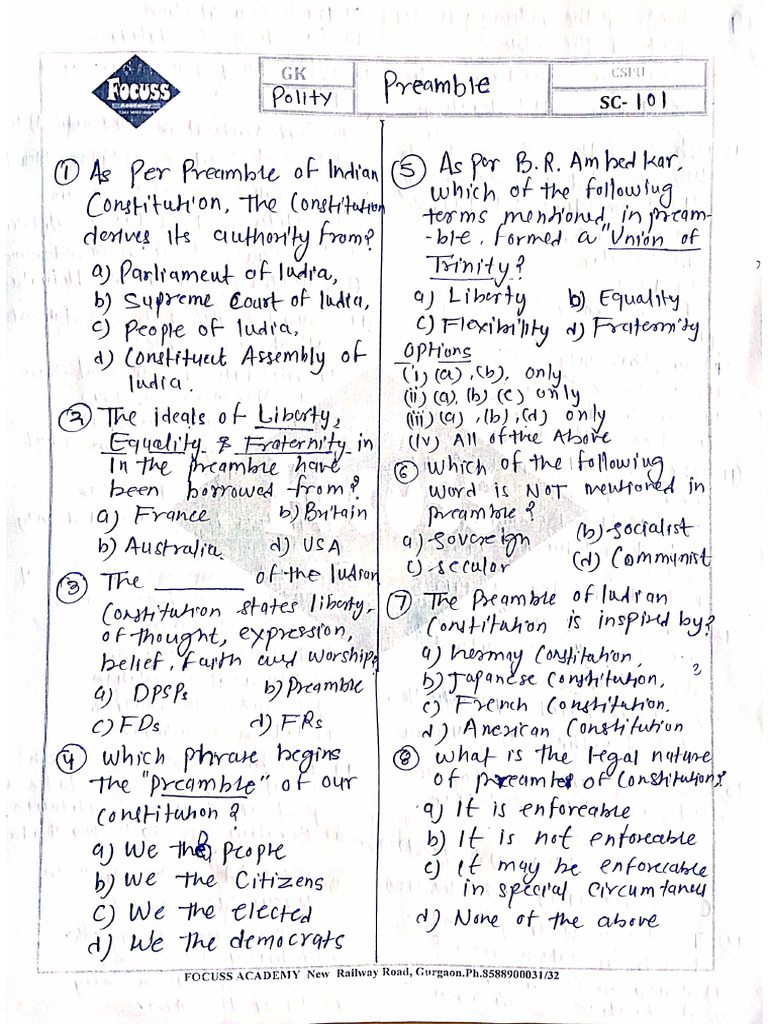 FOCUSS
Academy
GK
Polity
Preamble
CSPU
SC-101
① As Per Preamble of Indian
Constitution, the Constitution
derives its authority from?
a) Parliament of India,
b) Supreme Court of India,
c) People of India,
d) Constituent Assembly of
India.
② The ideals of Liberty,
Equality & Fraternity in
In the preamble have
been borrowed from?
a) France b) Britain
b) Australia. d) USA
③ The ________ of the Indian
Constitution states liberty,
of thought, expression,
belief, faith and worship?
a) DPSPs b) Preamble
c) FDs d) FRs
④ Which phrase begins
the "Preamble" of our
constitution?
a) We the people
b) We the Citizens
c) We the elected
d) We the democrats
⑤ As per B.R. Ambedkar,
which of the following
terms mentioned in pream-
-ble, formed a "Union of
Trinity?
a) Liberty b) Equality
c) Flexibility d) Fraternity
Options
(i) (a), (b), only
(ii) (a), (b) (c) only
(iii) (a), (b), (d) only
(iv) All of the Above
⑥ Which of the following
word is NOT mentioned in
preamble?
a) Sovereign (b) Socialist
c) Secular (d) Communist
⑦ The Preamble of Indian
Constitution is inspired by?
a) Germay Constitution,
b) Japanese Constitution,
c) French Constitution.
d) American Constitution
⑧ What is the legal nature
of preamble of Constitution?
a) It is enforeable
b) It is not enforeable
c) It may be enforecable
in special circumtances
d) None of the above
FOCUSS ACADEMY New Railway Road, Gurgaon.Ph.8588900031/32